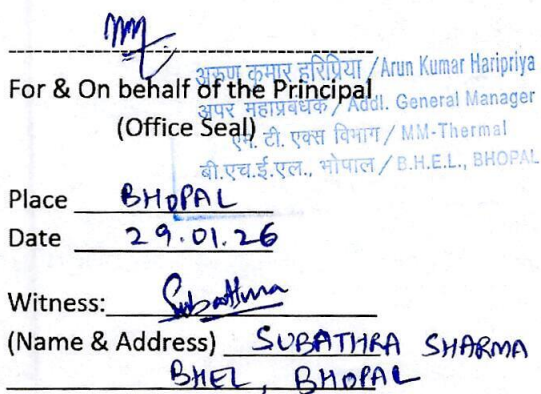 For & On behalf of the Principal
(Office Seal)
अरुण कुमार हरिप्रिया / Arun Kumar Haripriya
अपर महाप्रबंधक / Addl. General Manager
एम. टी. एक्स विभाग / MM-Thermal
बी.एच.ई.एल., भोपाल / B.H.E.L., BHOPAL
Place BHOPAL
Date 29.01.26
Witness: Subathra
(Name & Address) SUBATHRA SHARMA
BHEL, BHOPAL